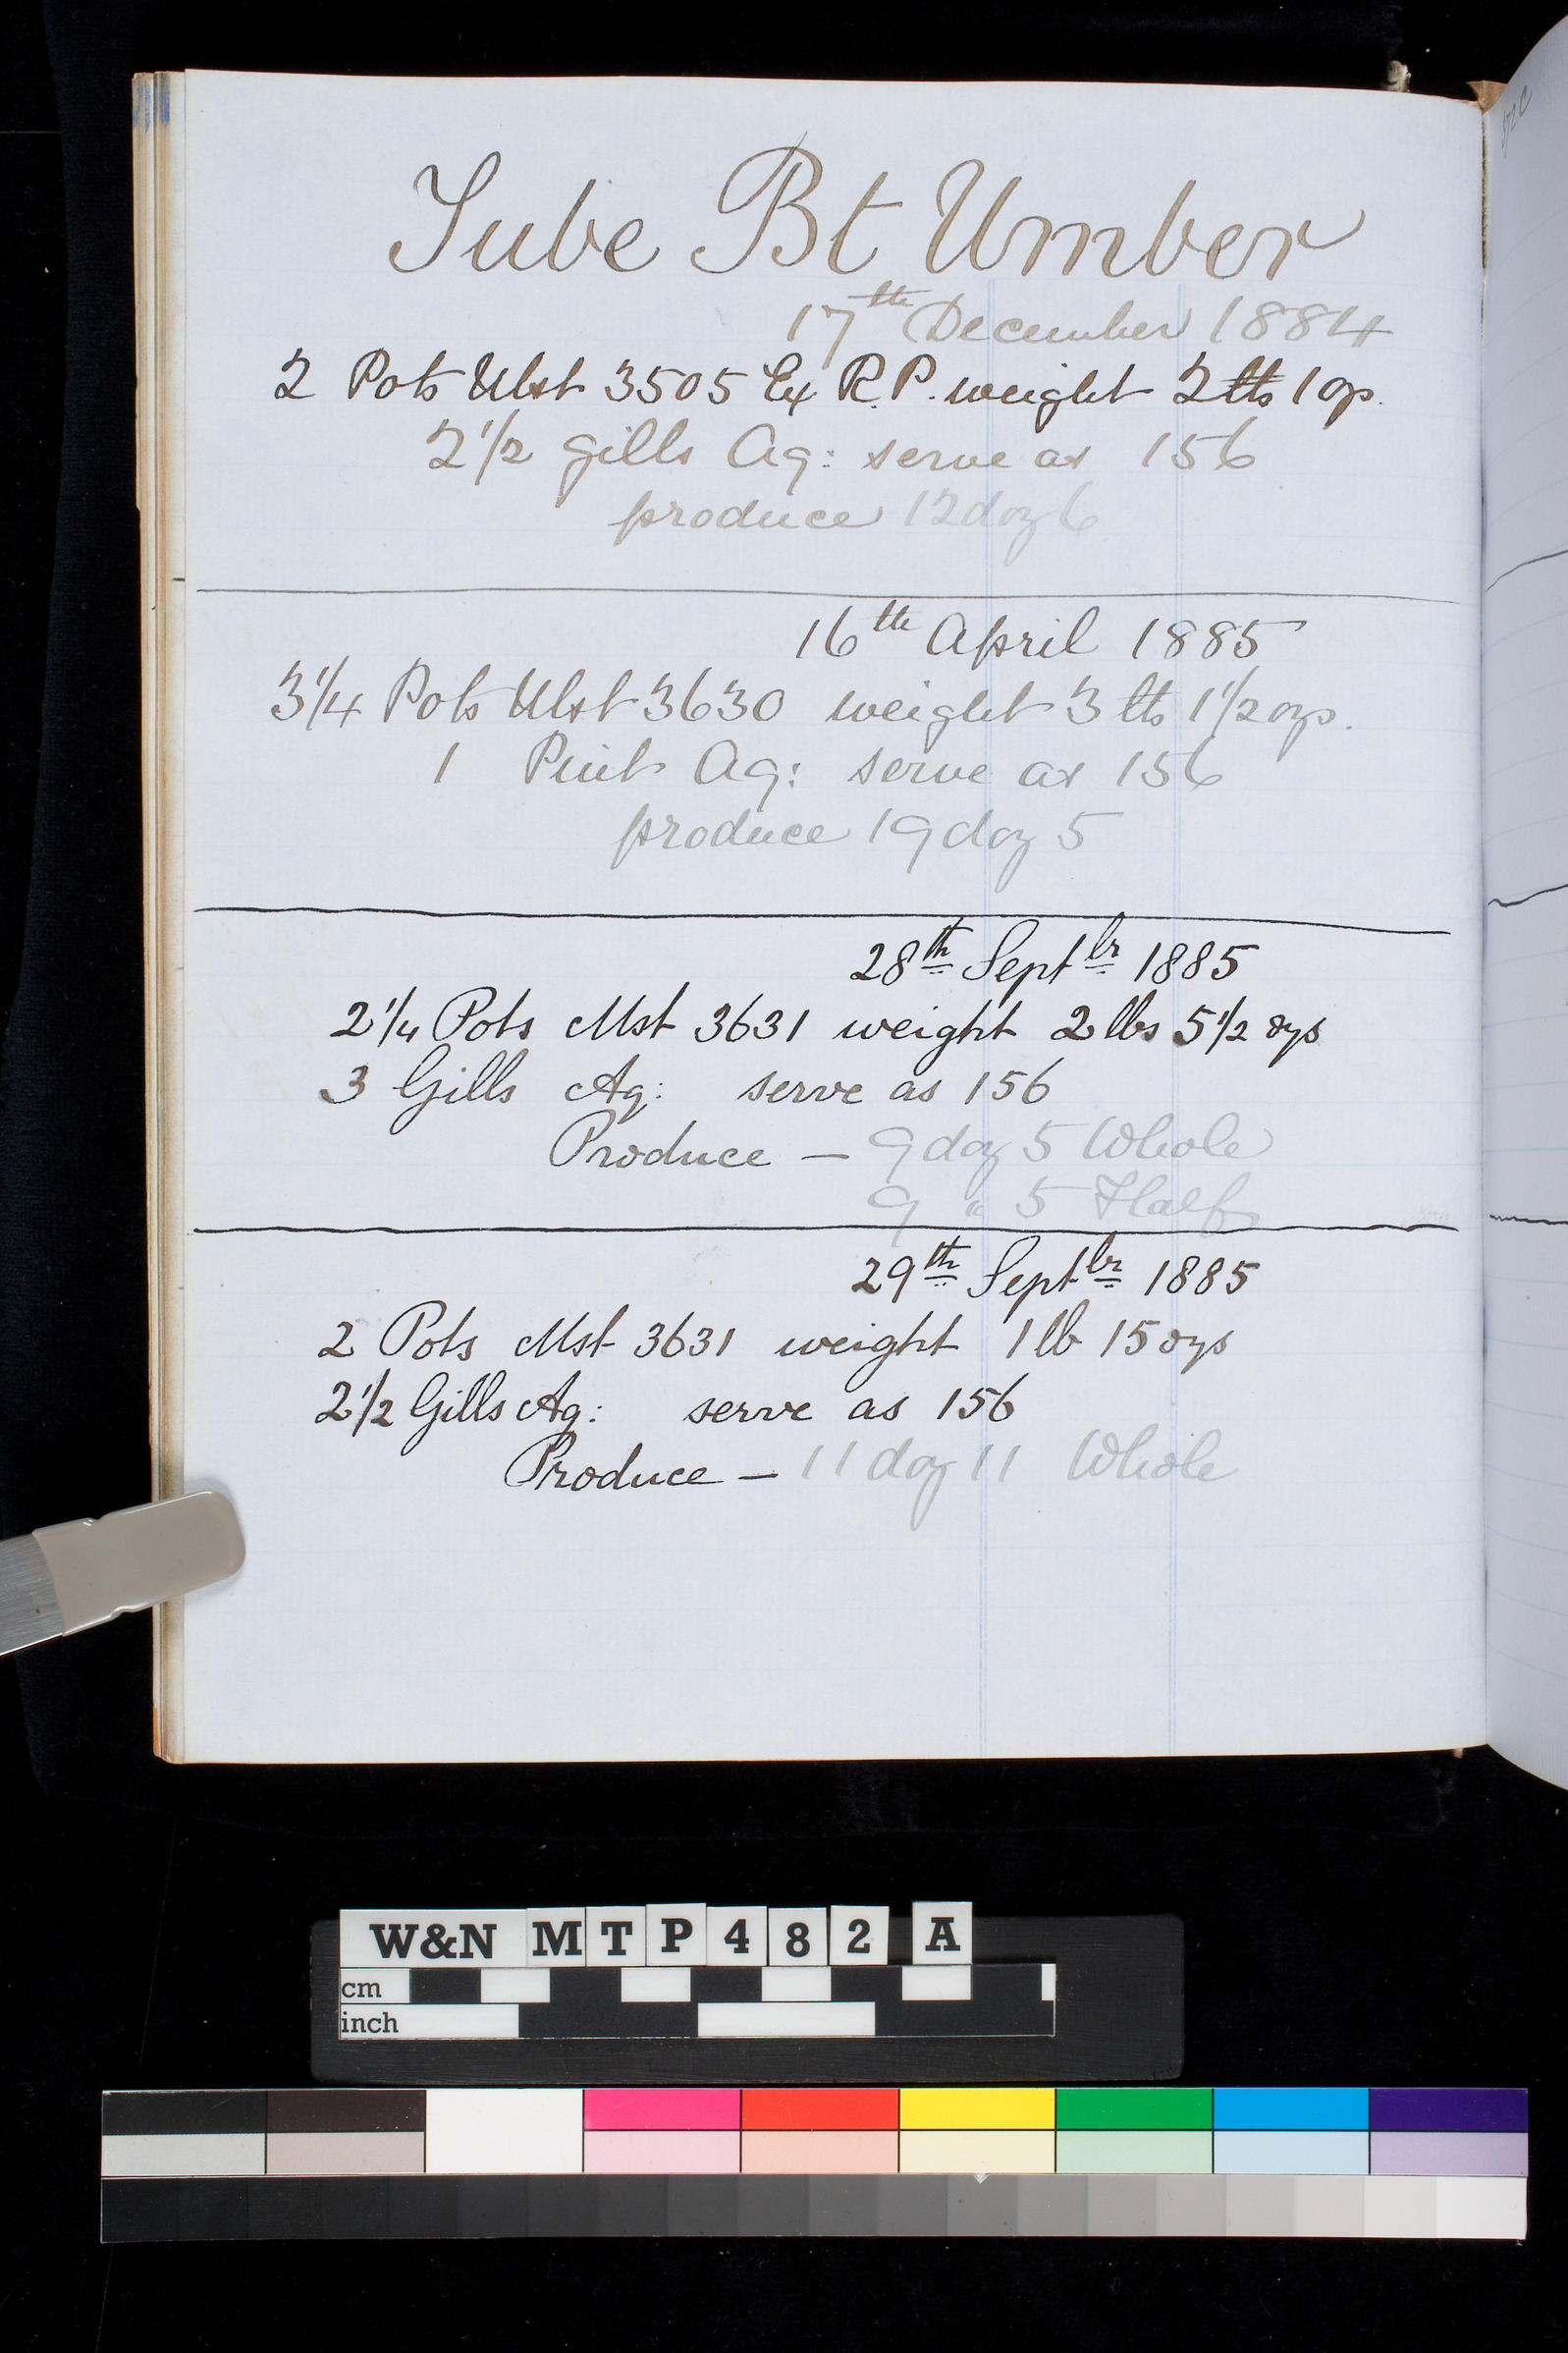 Tube Bt Umber
17th December 1884
2 Pots Mst 3505 Ex R.P. weight 2 lbs 1 oz.
2 1/2 gills Aq: serve as 156
produce 12 doz 6
16th April 1885
3 1/4 Pots Mst 3630 weight 3 lbs 1 1/2 ozs.
1 Pint Aq: serve as 156
produce 19 doz 5
28th Septbr 1885
2 1/4 Pots Mst 3631 weight 2 lbs 5 1/2 ozs
3 Gills Aq: serve as 156
Produce — 9 doz 5 Whole
9 " 5 Half
29th Septbr 1885
2 Pots Mst 3631 weight 1 lb 15 ozs
2 1/2 Gills Aq: serve as 156
Produce — 11 doz 11 Whole
W&N MTP482 A
cm
inch